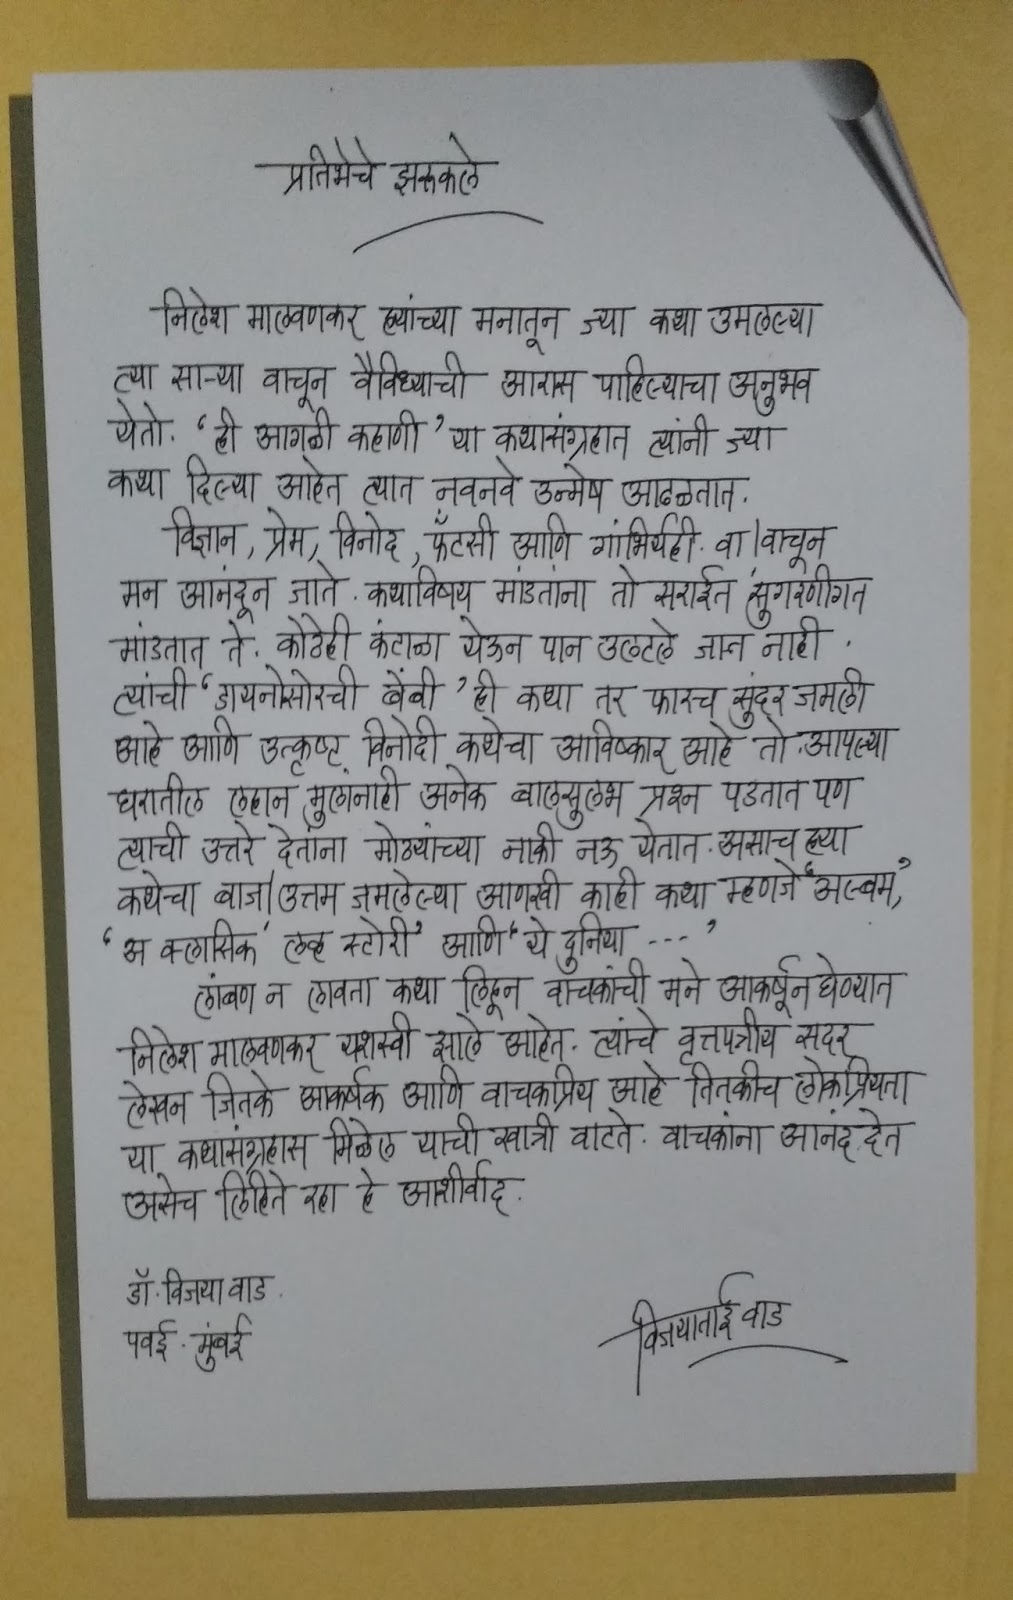 प्रतिभेचे झळकले
निलेश मालवणकर ह्यांच्या मनातून ज्या कथा उमलल्या
त्या साऱ्या वाचून वैविध्याची आरास पाहिल्याचा अनुभव
येतो. ‘ही आगळी कहाणी’ या कथासंग्रहात त्यांनी ज्या
कथा दिल्या आहेत त्यात नवनवे उन्मेष आढळतात.
विज्ञान, प्रेम, विनोद, फँटसी आणि गांभिर्यही. वा। वाचून
मन आनंदून जाते. कथाविषय मांडतांना तो सराईत सुगरणीगत
मांडतात ते. कोठेही कंटाळा येऊन पान उलटले जात नाही.
त्यांची ‘डायनोसोरची बेंबी’ ही कथा तर फारच सुंदर जमली
आहे आणि उत्कृष्ट विनोदी कथेचा आविष्कार आहे तो. आपल्या
घरातील लहान मुलांनाही अनेक बालसुलभ प्रश्न पडतात पण
त्याची उत्तरे देतांना मोठ्यांच्या नाकी नऊ येतात. असाच ह्या
कथेचा बाज। उत्तम जमलेल्या आणखी काही कथा म्हणजे ‘अल्बम’,
‘अ क्लासिक लव्ह स्टोरी’ आणि ‘ये दुनिया ---’
लांबण न लावता कथा लिहून वाचकांची मने आकर्षून घेण्यात
निलेश मालवणकर यशस्वी झाले आहेत. त्यांचे वृत्तपत्रीय सदर
लेखन जितके आकर्षक आणि वाचकप्रिय आहे तितकीच लोकप्रियता
या कथासंग्रहास मिळेल याची खात्री वाटते. वाचकांना आनंद देत
असेच लिहिते रहा हे आशीर्वाद.
डॉ. विजया वाड.
पवई. मुंबई
विजयाताई वाड